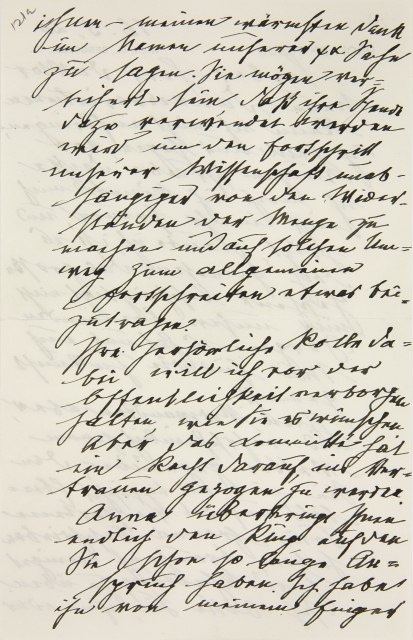 121a
ihnen – meinen wärmsten Dank
im Namen unserer ψα Sache
zu sagen. Sie mögen ver-
sichert sein, daß ihre Spende
dazu verwendet werden
wird um den Fortschritt
unserer Wissenschaft unab-
hängiger von den Wider-
ständen der Menge zu
machen und auf solchen Um-
weg zum allgemeinen
Fortschreiten etwas bei-
zutragen.
Ihre persönliche Rolle da-
bei will ich vor der
Öffentlichkeit verborgen
halten wie Sie es wünschen
Aber das Committé hat
ein Recht darauf ins Ver-
trauen gezogen zu werden.
Anna überbringt Ihnen
endlich den Ring auf den
Sie schon so lange An-
spruch haben. Ich habe
ihn von meinem Finger